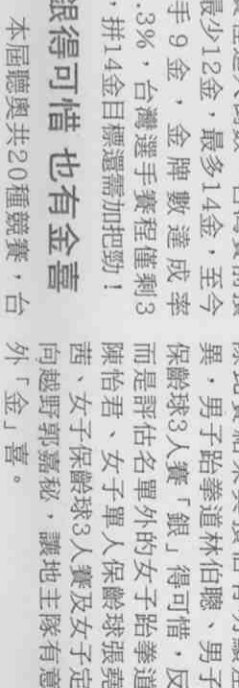 最少12金，最多14金，至今
手9金，金牌數達成率
.3%，台灣選手賽程僅剩3
，拼14金目標還需加把勁！
銀得可惜 也有金喜
本屆聽奧共20種競賽，台
異，男子跆拳道林伯聰、男子
保齡球3人賽「銀」得可惜，反
而是評估名單外的女子跆拳道
陳怡君、女子單人保齡球張堯
茜、女子保齡球3人賽及女子定
向越野郭嘉秘，讓地主隊有意
外「金」喜。